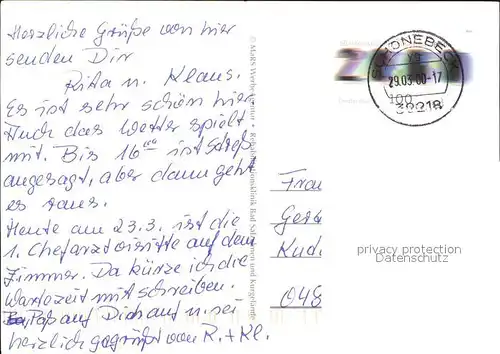 Herzliche Grüße von hier
senden Dir
Rita u. Klaus.
Es ist sehr schön hier
Auch das Wetter spielt
mit. Bis 16⁰⁰ ist Streß
angesagt, aber dann geht
es raus.
Heute am 23.3. ist die
1. Chefarztvisite auf dem
Zimmer. Da kürze ich die
Wartezeit mit schreiben.
Paß auf Dich auf u. sei
herzlich gegrüßt von R. + Kl.
SCHÖNEBECK
29.03.00-17
39218
Frau
Kud.
048
privacy protection
Datenschutz